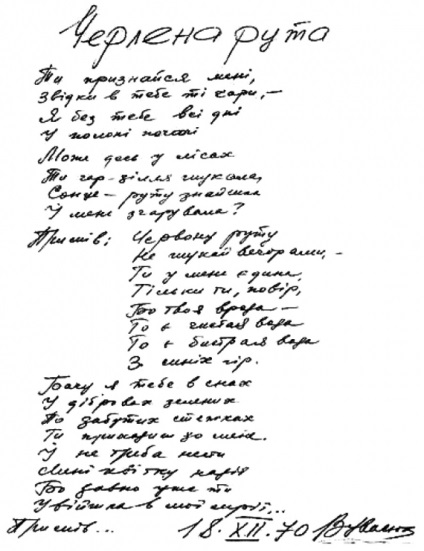 Черлена рута
Ти признайся мені,
Звідки в тебе ті чари,–
Я без тебе всі дні
У полоні печалі
Може десь у лісах
Ти чар-зілля шукала,
Сонце-руту знайшла
І мене зчарувала?
Приспів: Червону руту
Не шукай вечорами,–
Ти у мене єдина,
Тільки ти, повір,
Бо твоя врода –
То є чистая вода
То є бистрая вода
З синіх гір.
Бачу я тебе в снах
У дібровах зелених
По забутих стежках
Ти приходиш до мене.
І не треба нести
Мені квітку надії
Бо давно уже ти
Увійшла в мої мрії...
Приспів... 18.XII.70